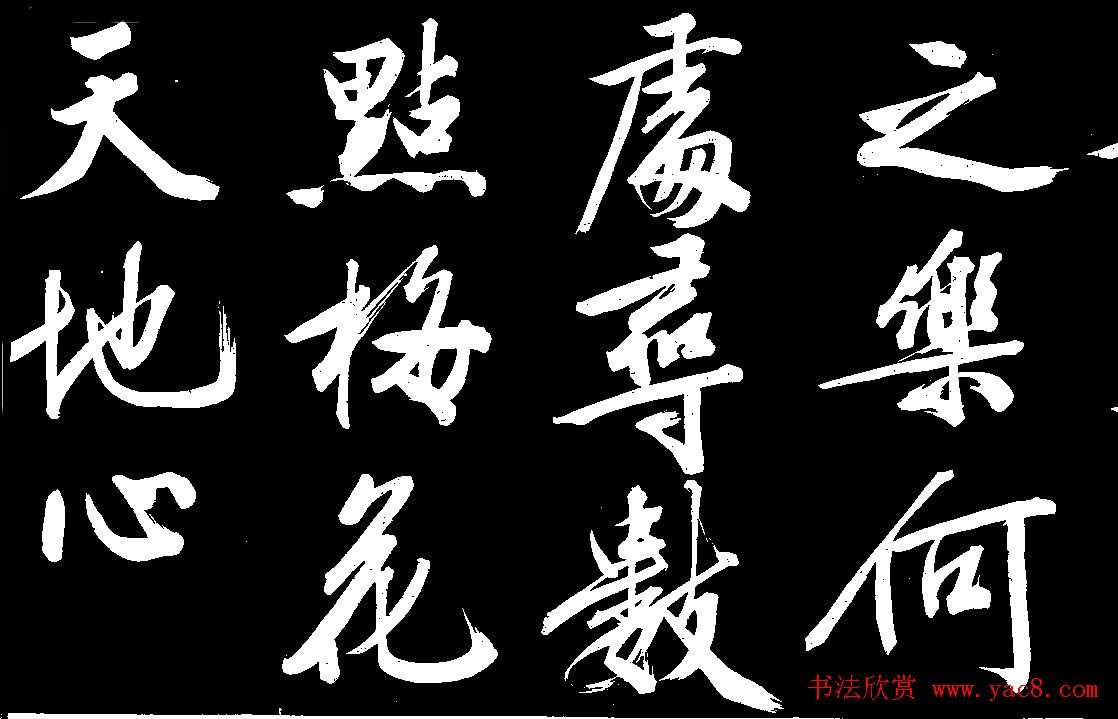 之樂何
處尋數
點梅花
天地心
书法欣赏 www.yac8.com